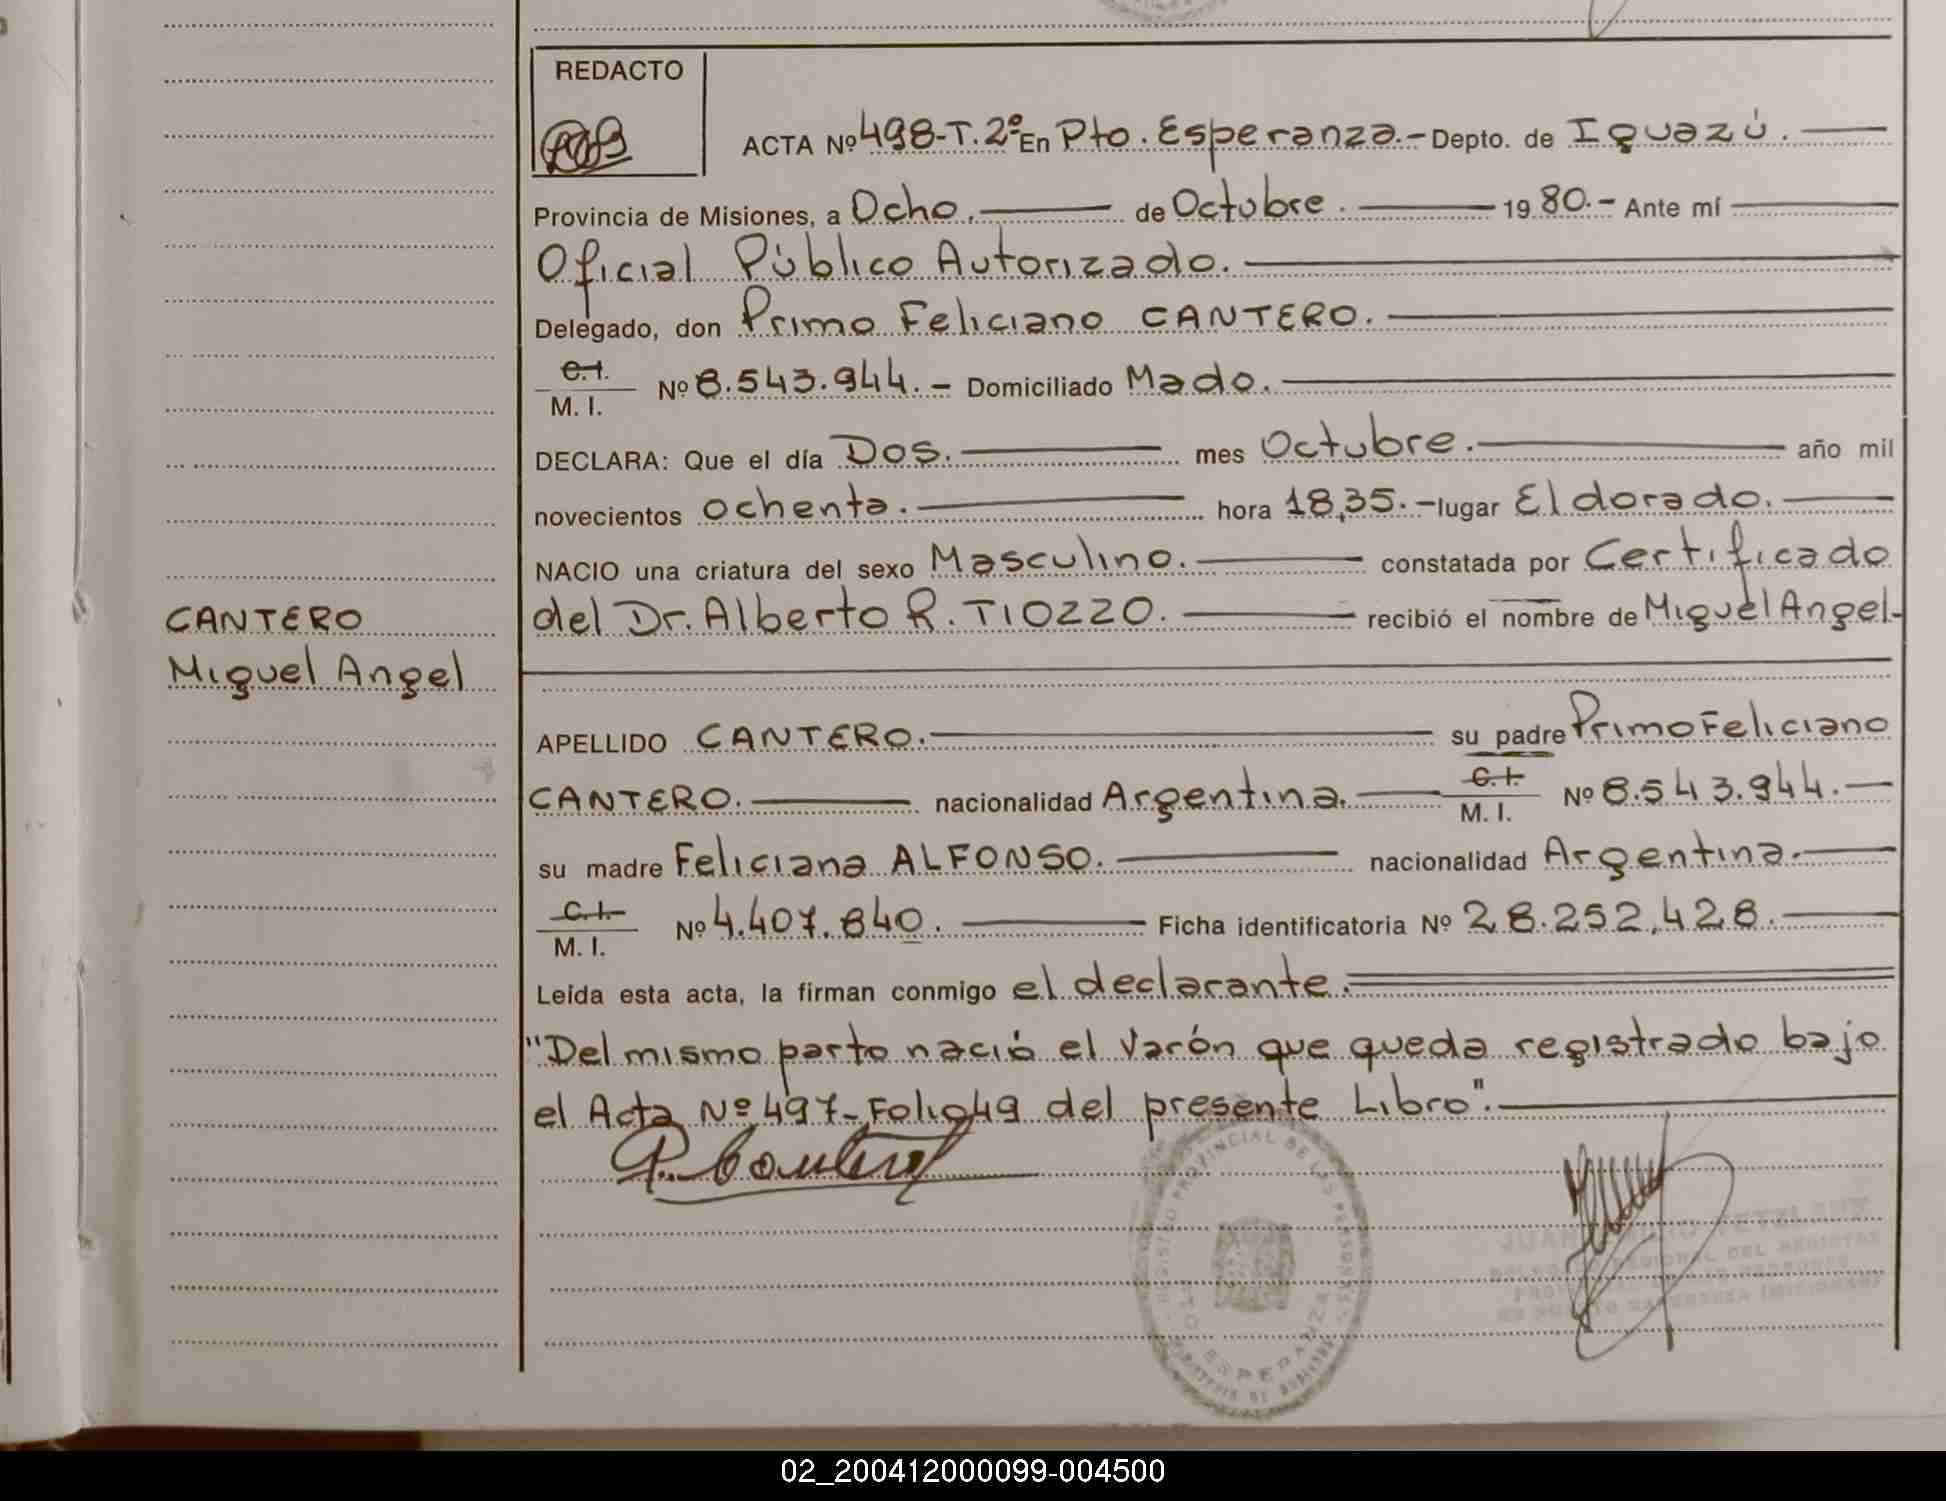 REDACTO
ACTA Nº 498-T.2º En Pto. Esperanza.- Depto. de Iguazú.
Provincia de Misiones, a Ocho. de Octubre. 19 80.- Ante mí
Oficial Público Autorizado.
Delegado, don Primo Feliciano CANTERO.
C.I.
M. I. Nº 8.543.944.- Domiciliado Mado.
DECLARA: Que el día Dos. mes Octubre. año mil
novecientos ochenta. hora 18,35.- lugar Eldorado.
NACIO una criatura del sexo Masculino. constatada por Certificado
del Dr. Alberto R. TIOZZO. recibió el nombre de Miguel Angel-
CANTERO
Miguel Angel
APELLIDO CANTERO. su padre Primo Feliciano
CANTERO. nacionalidad Argentina. C.I. M. I. Nº 8.543.944.-
su madre Feliciana ALFONSO. nacionalidad Argentina.
C.I.
M. I. Nº 4.407.840. Ficha identificatoria Nº 28.252.428.
Leída esta acta, la firman conmigo el declarante.
"Del mismo parto nació el Varón que queda registrado bajo
el Acta Nº 497-Folio 49 del presente Libro".
P. Cantero
REGISTRO PROVINCIAL DE LAS PERSONAS
ESPERANZA
02_200412000099-004500